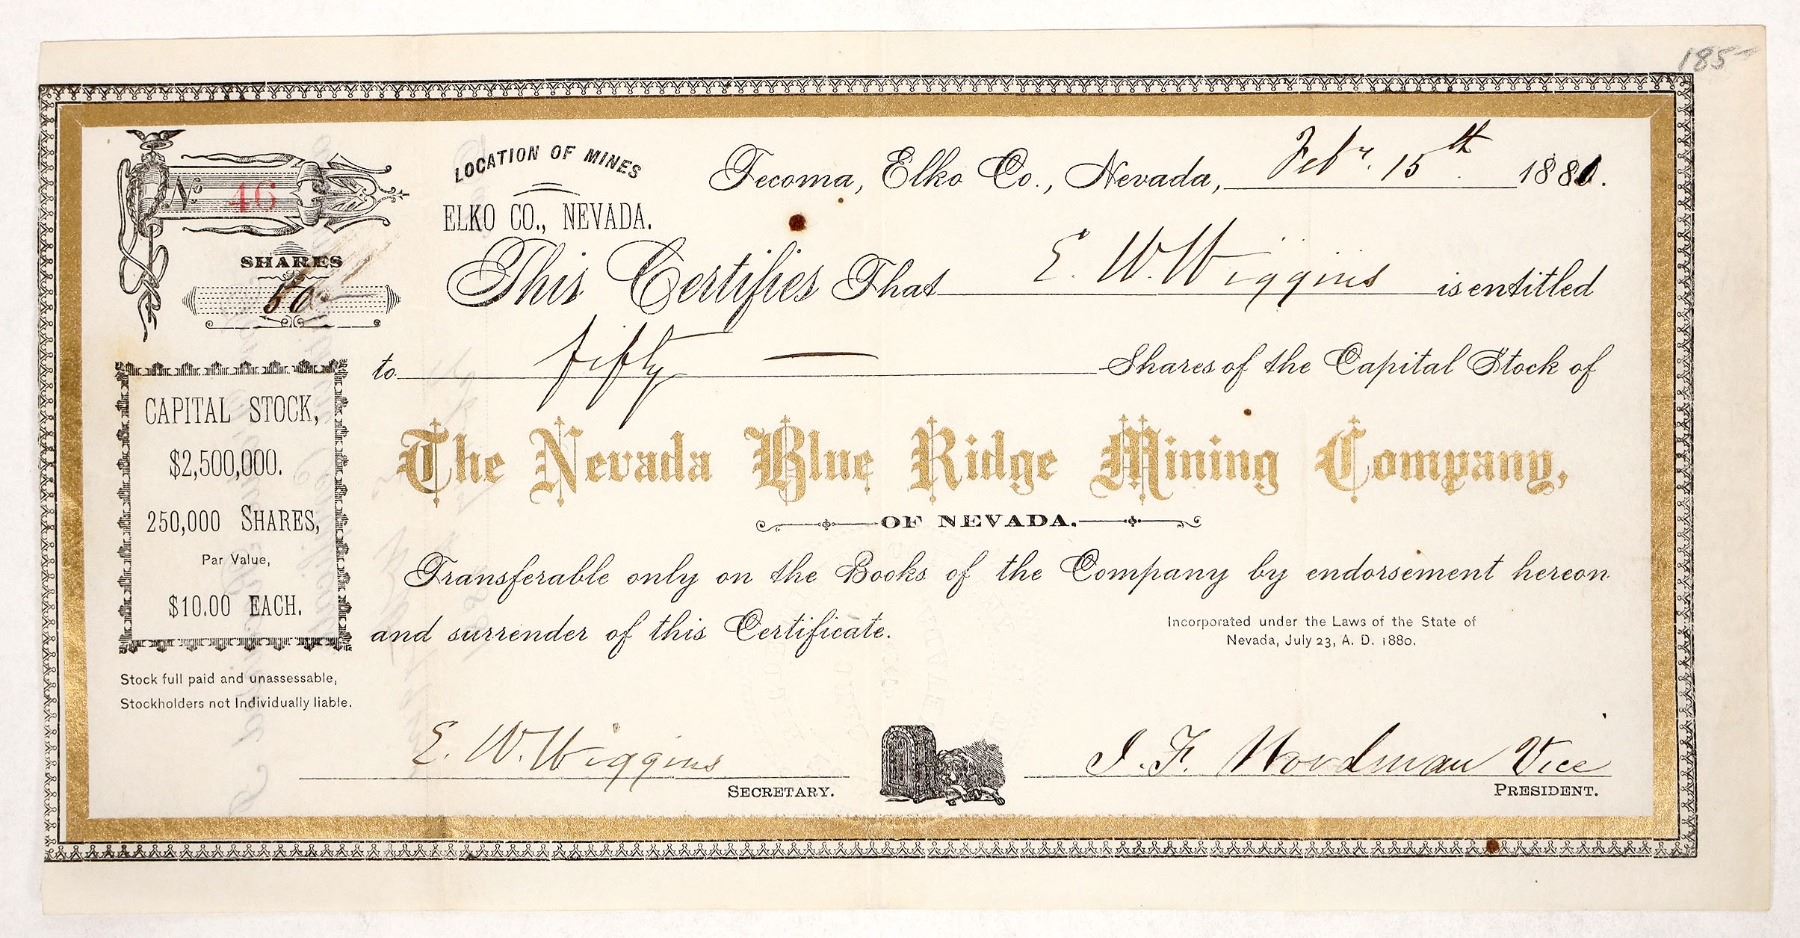 185-
No. 46
SHARES
50
LOCATION OF MINES
ELKO CO., NEVADA.
Tecoma, Elko Co., Nevada, Feby. 15th 1881.
This Certifies That E. W. Wiggins is entitled
to fifty — Shares of the Capital Stock of
The Nevada Blue Ridge Mining Company,
OF NEVADA.
Transferable only on the Books of the Company by endorsement hereon
and surrender of this Certificate.
Incorporated under the Laws of the State of
Nevada, July 23, A. D. 1880.
CAPITAL STOCK,
$2,500,000.
250,000 SHARES,
Par Value,
$10.00 EACH.
Stock full paid and unassessable,
Stockholders not Individually liable.
E. W. Wiggins
SECRETARY.
J. F. Woodman Vice
PRESIDENT.